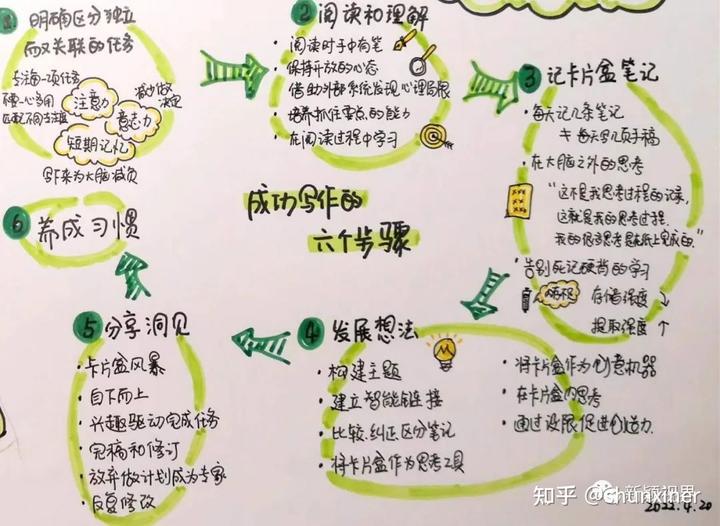 1 明确区分独立
而又关联的任务
专注每一项任务
不要一心多用
减少做
决定
注意力
意志力
短期记忆
写下来为大脑减负
2 阅读和理解
阅读时手中有笔
保持开放的心态
借助外部系统发现心理局限
培养抓住重点的能力
在阅读过程中学习
3 记卡片盒笔记
每天记几条笔记
≠每天写几页手稿
在大脑之外的思考
“这不是我思考过程的记录,
这就是我的思考过程.
我的很多思考是在纸上完成的.”
告别死记硬背的学习
存储强度↓
提取强度↑
成功写作的
六个步骤
4 发展想法
构建主题
建立智能链接
比较.纠正.区分笔记
将卡片盒作为思考工具
将卡片盒作为创意机器
在卡片盒内思考
通过设限促进创造力
5 分享洞见
卡片盒风暴
自下而上
兴趣驱动完成任务
完稿和修订
放弃做计划成为专家
反复修改
6 养成习惯
知乎 @shunxiner
新颖视界
2022.4.20